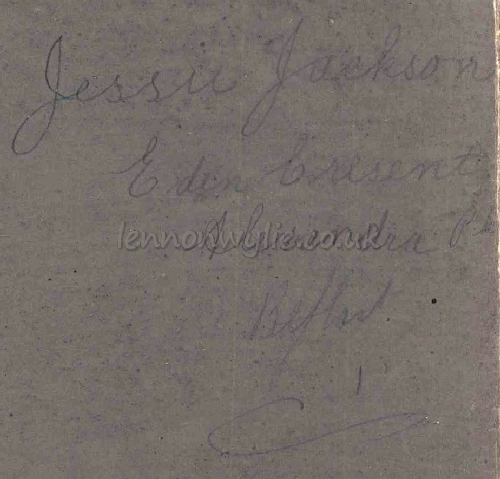 Jessie Jackson
Eden Cresent
Alexandra Pk
lennonwylie.co.uk
Belfast